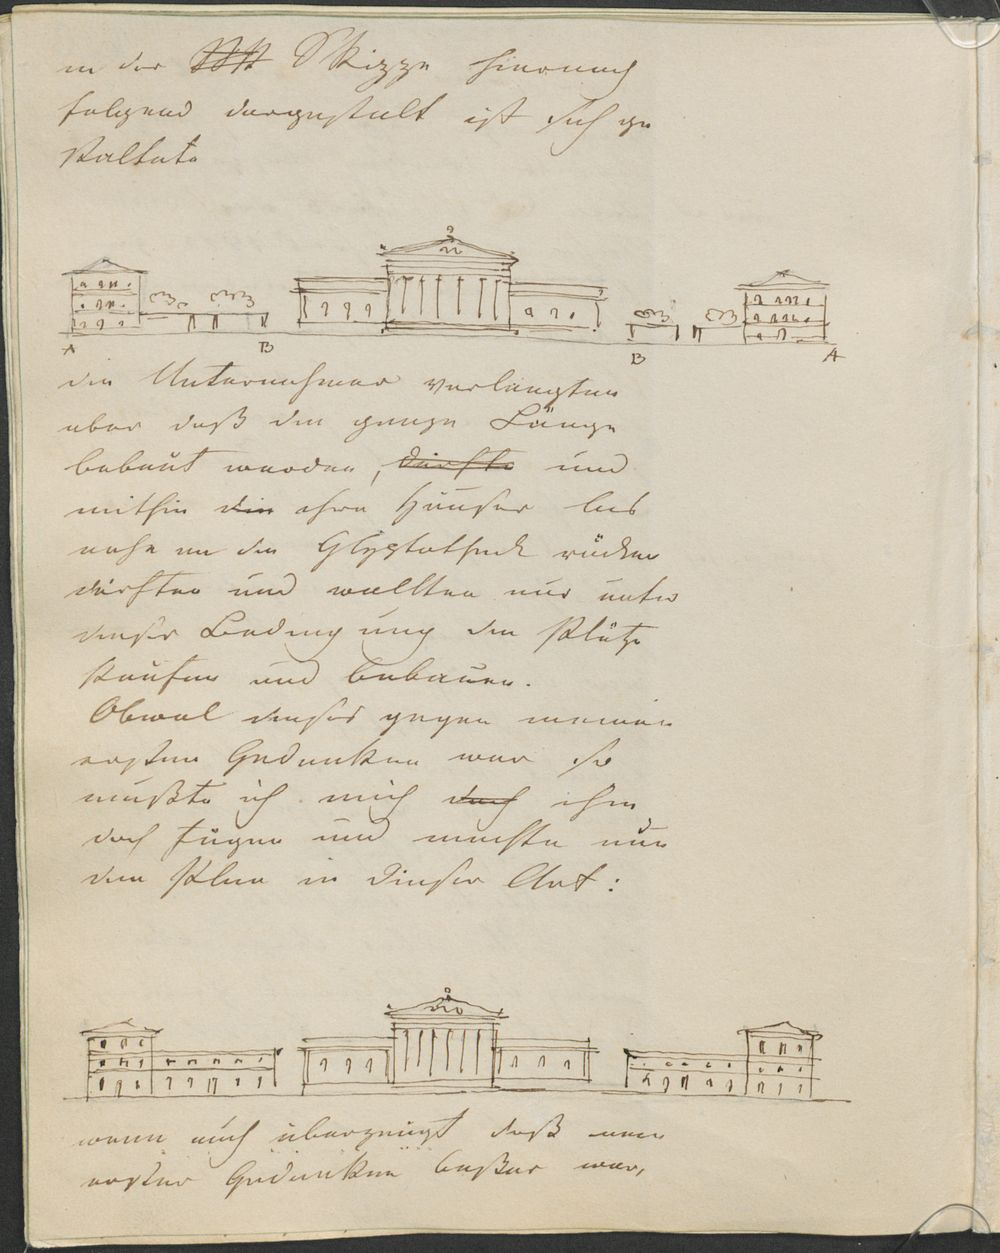 in der Skizze hiernach
folgend dargestalt ist sich ge
staltete
A B B A
die Unternehmer verlangten
aber daß die ganze Länge
bebaut werden, dürfte und
mithin die ihre Häuser bis
nahe an die Glyptotheck rücken
dürften und wollten nur unter
dieser Bedingung die Plätze
kaufen und bebauen.
Obwol dieses gegen meinen
ersten Gedanken war so
mußte ich mich doch ihm
doch fügen und machte nun
den Plan in dieser Art:
wenn auch überzeugt daß mein
erster Gedanken beßer war,